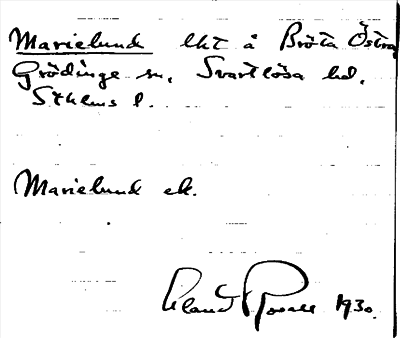 Marielund lht å Bröta Östra,
Grödinge sn, Svartlösa hd,
Sthlms l.
Marielund ek.
1930.